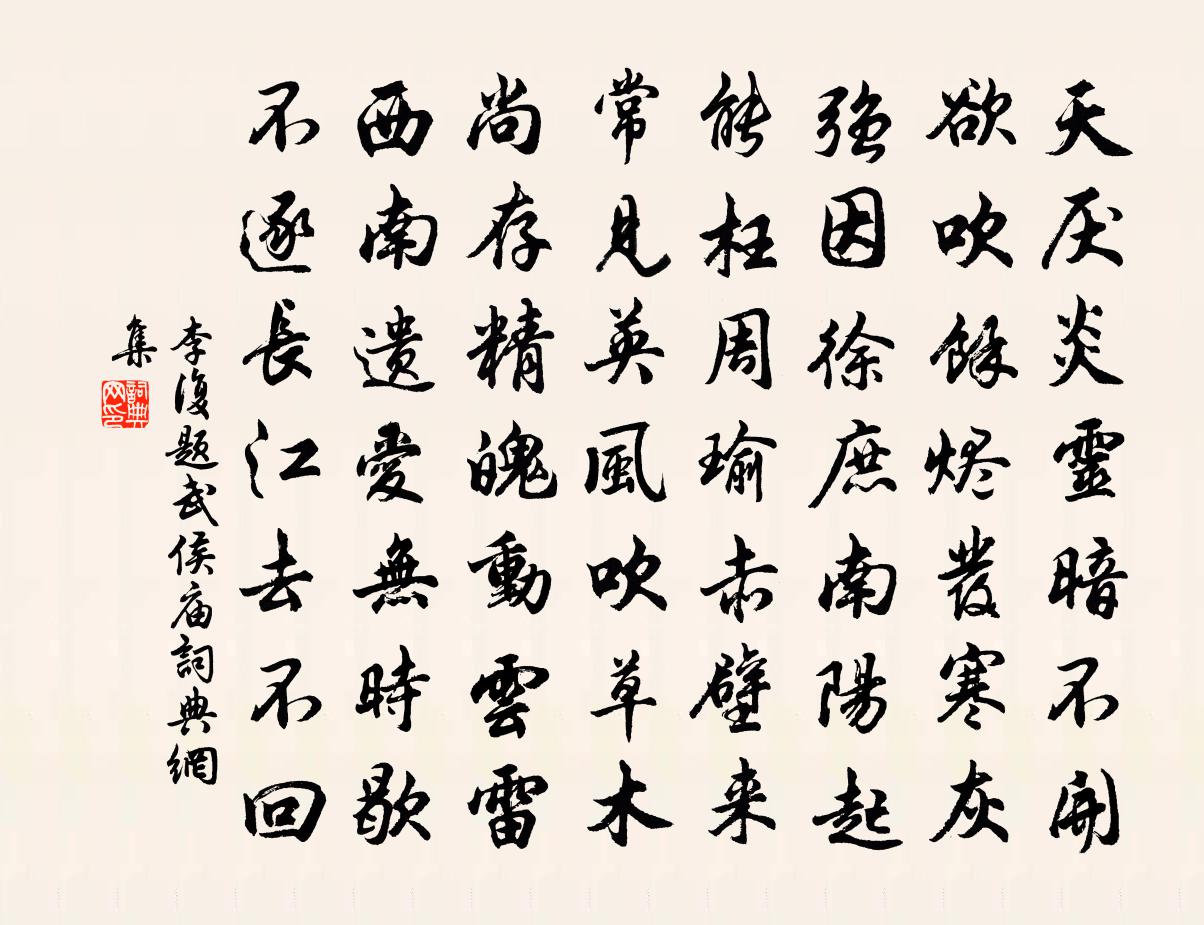 天厌炎靈暗不開
欲吹餘烬發寒灰
強因徐庶南陽起
能枉周瑜赤壁来
常見英風吹草木
尚存精魄動雲雷
西南遗愛無時歇
不逐長江去不回
李復题武侯庙詞典網
集
詞典
网印